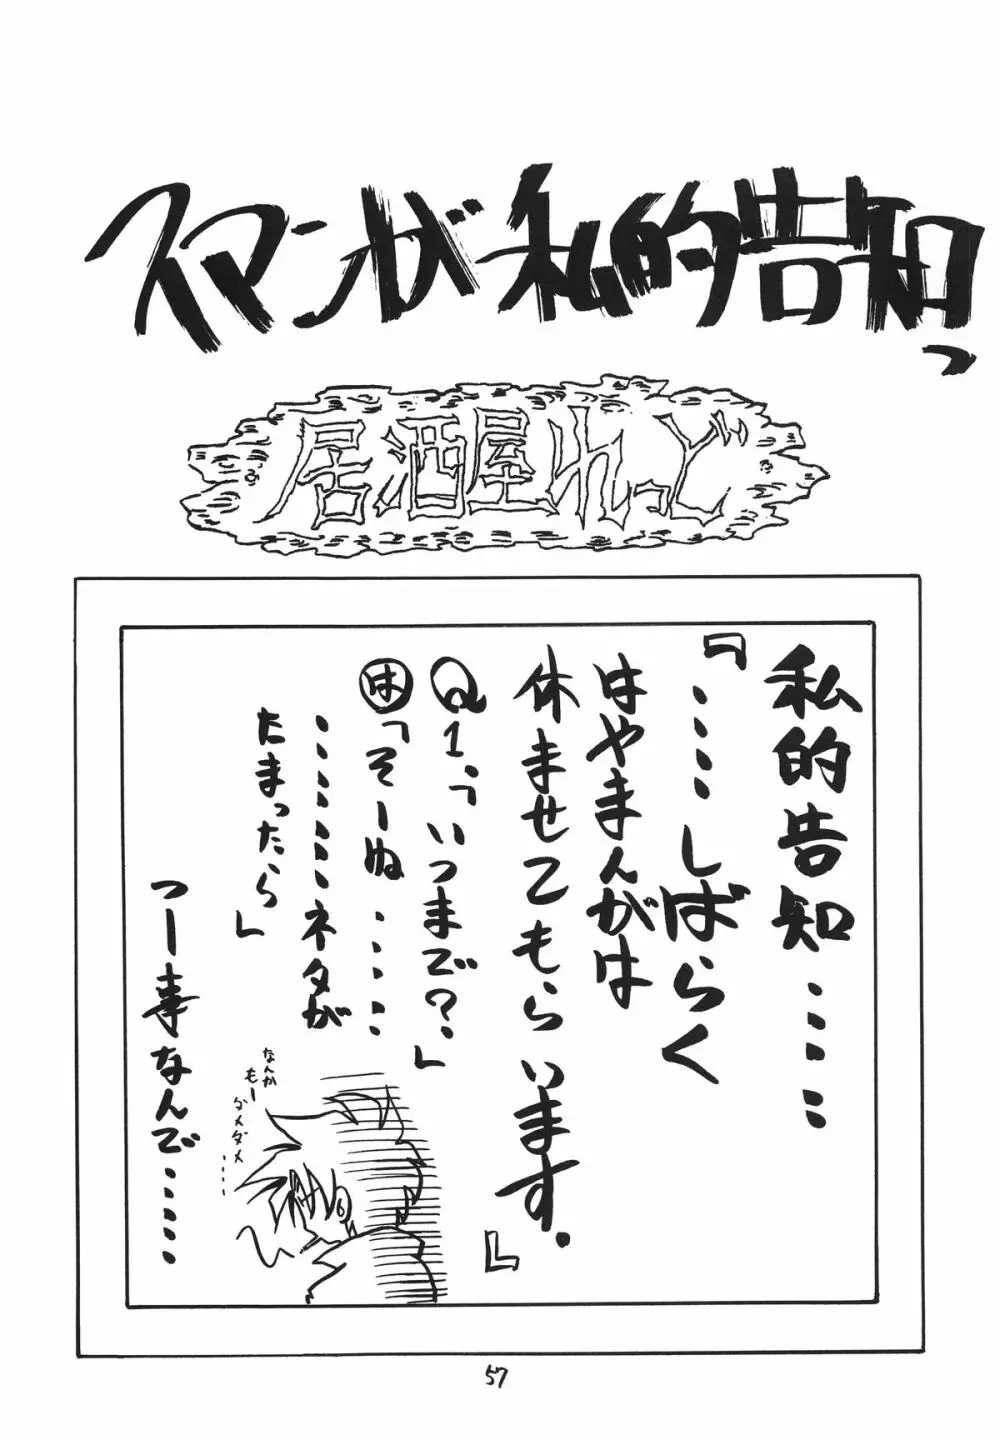 スマンが私的告知っ
居酒屋れっど
私的告知・・・・
『・・・・しばらく
はやまんがは
休ませてもらいます。』
Q1、「いつまで?」
は「そーぬ・・・・・
・・・・・・・ネタが
たまったら」
つー事なんで・・・・・
なんか
もー
ダメダメ
・・・・
57